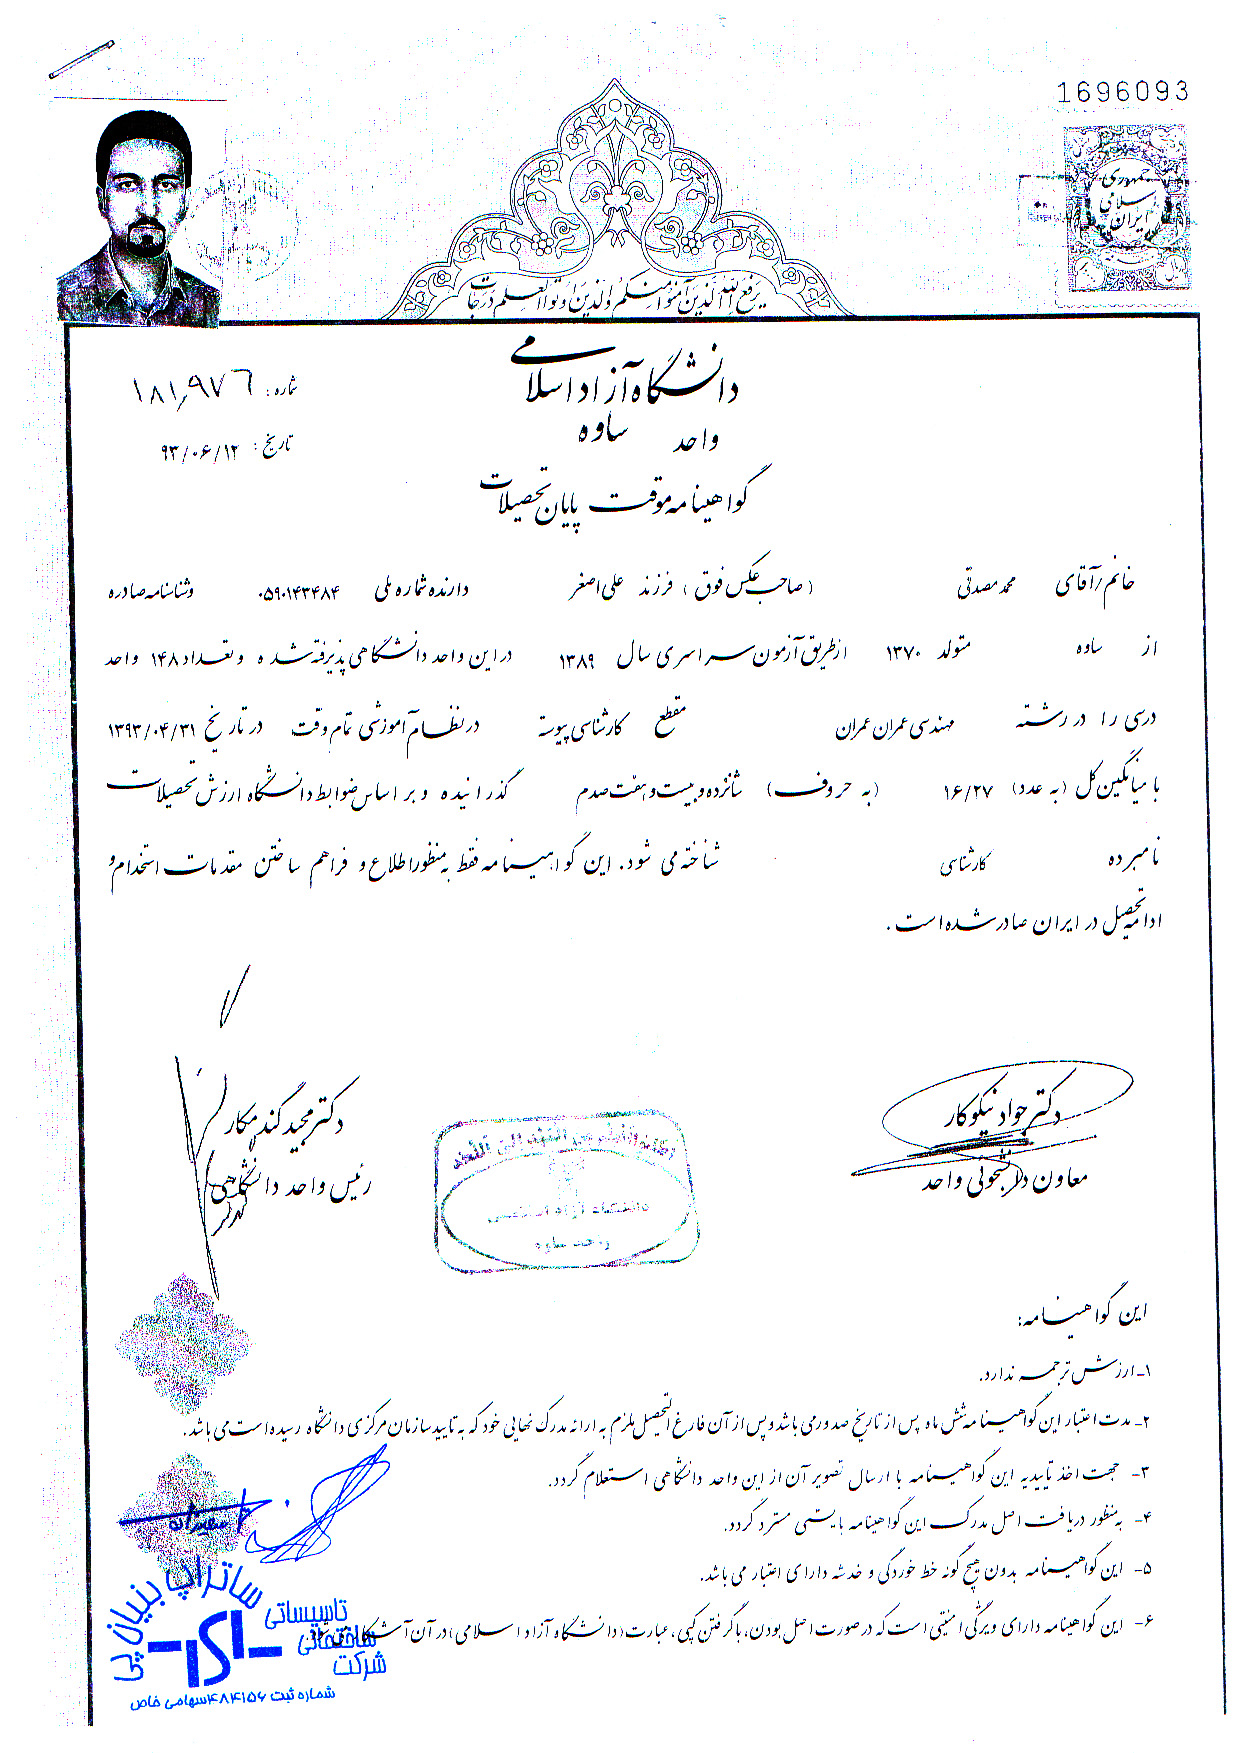 1696093
جمهوری
اسلامی
ایران
یرفع الله الذین آمنوا منکم والذین اوتوا العلم درجات
دانشگاه آزاد اسلامی
واحد ساوه
شماره: ۱۸۱٫۹۷۶
تاریخ: ۹۳/۰۶/۱۲
گواهینامه موقت پایان تحصیلات
خانم/آقای محمد مصدقی (صاحب عکس فوق) فرزند علی اصغر دارنده شماره ملی ۰۵۹۰۱۴۳۴۸۴ وشناسنامه صادره
از ساوه متولد ۱۳۷۰ از طریق آزمون سراسری سال ۱۳۸۹ در این واحد دانشگاهی پذیرفته شده و تعداد ۱۴۸ واحد
درسی را در رشته مهندسی عمران عمران مقطع کارشناسی پیوسته در نظام آموزشی تمام وقت در تاریخ ۱۳۹۳/۰۴/۳۱
با میانگین کل (به عدد) ۱۶/۲۷ (به حروف) شانزده و بیست و هفت صدم گذرانیده و بر اساس ضوابط دانشگاه ارزش تحصیلات
نامبرده کارشناسی شناخته می شود. این گواهینامه فقط به منظور اطلاع و فراهم ساختن مقدمات استخدام و
ادامه تحصیل در ایران صادر شده است.
دکتر جواد نیکوکار
معاون دانشجوئی واحد
دکتر مجید گندمکار
رئیس واحد دانشگاهی
دانشگاه آزاد اسلامی
واحد ساوه
این گواهینامه:
۱- ارزش ترجمه ندارد.
۲- مدت اعتبار این گواهینامه شش ماه پس از تاریخ صدور می باشد و پس از آن فارغ التحصیل ملزم به ارائه مدرک نهایی خود که به تایید سازمان مرکزی دانشگاه رسیده است می باشد.
۳- جهت اخذ تاییدیه این گواهینامه با ارسال تصویر آن از این واحد دانشگاهی استعلام گردد.
۴- به منظور دریافت اصل مدرک این گواهینامه بایستی مسترد گردد.
۵- این گواهینامه بدون هیچ گونه خط خوردگی و خدشه دارای اعتبار می باشد.
۶- این گواهینامه دارای ویژگی امنیتی است که در صورت اصل بودن، با گرفتن کپی، عبارت (دانشگاه آزاد اسلامی) در آن
ساتراپ بنیان پی
تاسیساتی
ساختمانی
شرکت
شماره ثبت ۴۸۴۱۵۶ سهامی خاص